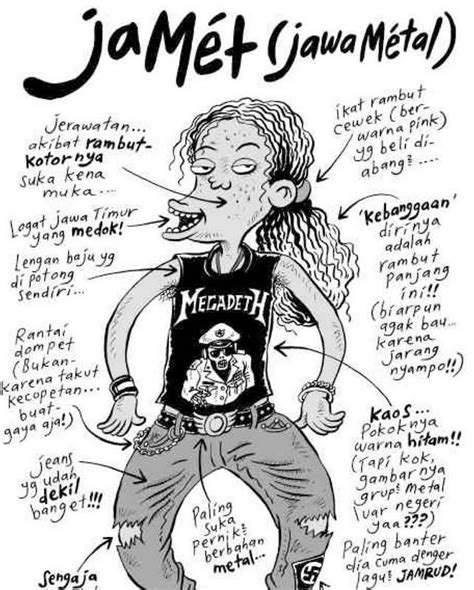 jaMét (jawa Métal)
Jerawatan...
akibat rambut-
kotornya
suka kena
muka....
ikat rambut
cewek (ber-
warna pink)
yg beli di-
abang²....
Logat jawa Timur
yang medok!
'Kebanggaan'
dirinya
adalah
rambut
panjang
ini!!
(biarpun
agak bau...
karena
jarang
nyampo!!)
Lengan baju yg
di potong
sendiri...
MEGADETH
Rantai
dompet
(Bukan-
karena takut
kecopetan...
buat-
gaya aja!)
kaos...
Pokoknya
warna hitam!!
(Tapi kok,
gambarnya
grup² metal
luar negeri
yaa???)
jeans
yg udah
dekil
banget!!!
Paling
suka
pernik²
berbahan
metal...
Paling banter
dia cuma denger
lagu² JAMRUD!
Sengaja